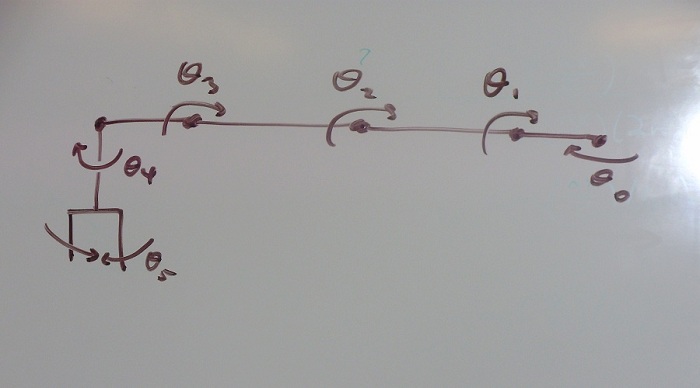 θ3 θ2 θ1
θ4 θ0
θ5